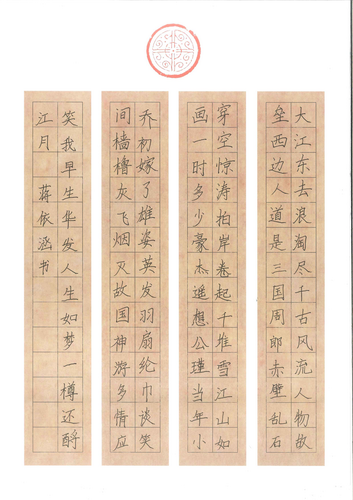 大江东去浪淘尽千古风流人物故
垒西边人道是三国周郎赤壁乱石
穿空惊涛拍岸卷起千堆雪江山如
画一时多少豪杰遥想公瑾当年小
乔初嫁了雄姿英发羽扇纶巾谈笑
间樯橹灰飞烟灭故国神游多情应
笑我早生华发人生如梦一樽还酹
江月 蒋依涵书